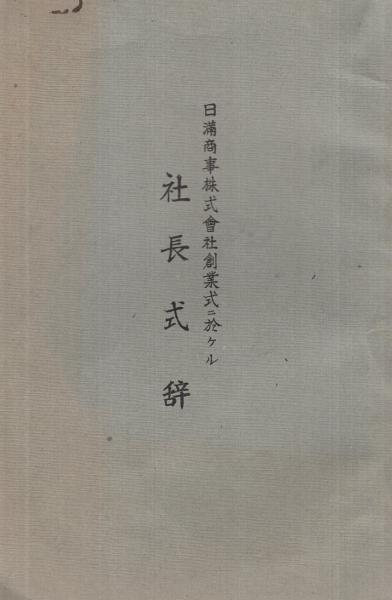 日滿商事株式會社創業式ニ於ケル
社長式辞